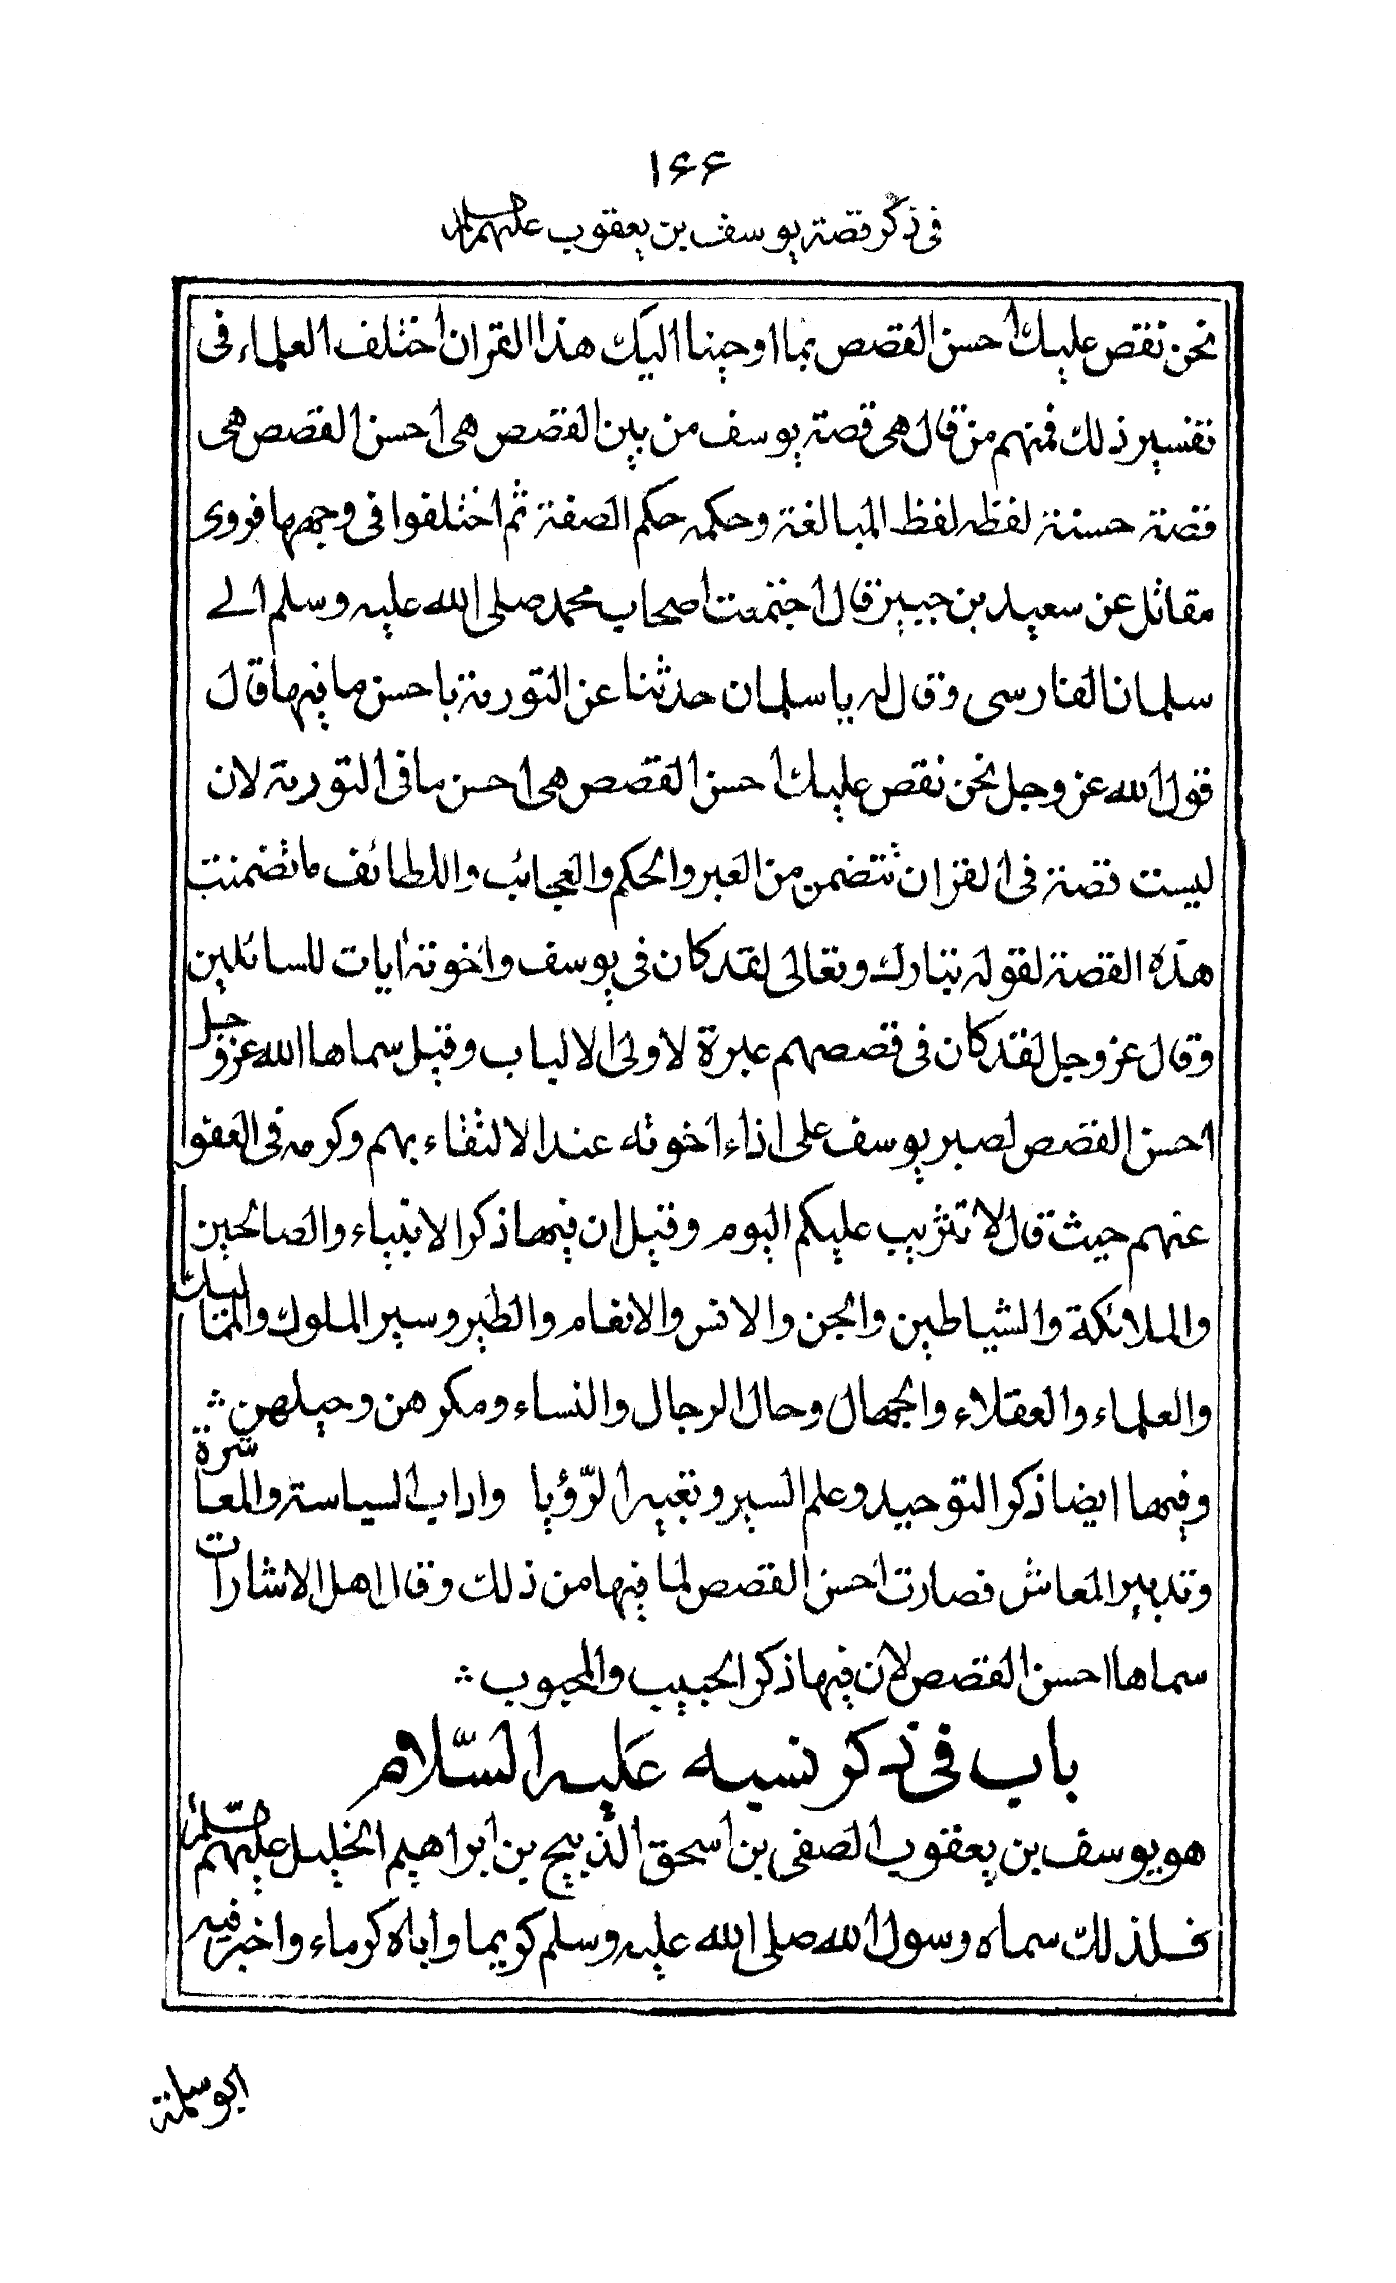 ۱۶۶
فى ذكر قصة يوسف بن يعقوب عليهم السلام
نحن نقص عليك احسن القصص بما اوحينا اليك هذا القران اختلف العلماء فى
تفسير ذلك فمنهم من قال هى قصة يوسف من بين القصص هى احسن القصص هى
قصة حسنة لفظه لفظ المبالغة وحكمه حكم الصفة ثم اختلفوا فى وجهها فروى
مقاتل عن سعيد بن جبير قال اجتمعت اصحاب محمد صلى الله عليه وسلم الى
سلمان الفارسى وقال له يا سلمان حدثنا عن التورية باحسن ما فيها قال
قول الله عز وجل نحن نقص عليك احسن القصص هى احسن ما فى التورية لان
ليست قصة فى القران تتضمن من العبر والحكم والعجائب واللطائف ما تضمنت
هذه القصة لقوله تبارك وتعالى لقد كان فى يوسف واخوته ايات للسائلين
وقال عز وجل لقد كان فى قصصهم عبرة لاولى الالباب وقيل سماها الله عز وجل
احسن القصص لصبر يوسف على اذاء اخوته عند الالتقاء بهم وكرمه فى العفو
عنهم حيث قال لا تثريب عليكم اليوم وقيل ان فيها ذكر الانبياء والصالحين
والملائكة والشياطين والجن والانس والانعام والطير وسير الملوك والمماليك
والعلماء والعقلاء والجهال وحال الرجال والنساء ومكرهن وحيلهن ؞
وفيها ايضا ذكر التوحيد وعلم السير وتعبير الرّؤيا واداب السياسة والمعاشرة
وتدبير المعاش فصارت احسن القصص لما فيها من ذلك وقال اهل الاشارات
سماها احسن القصص لان فيها ذكر الحبيب والمحبوب ؞
باب فى ذكر نسبه عليه السّلام
هو يوسف بن يعقوب الصفى بن اسحق الذبيح بن ابراهيم الخليل عليهم السّلم
فلذلك سماه رسول الله صلى الله عليه وسلم كريما واباه كرماء واخبر فيه
ابو سلمة